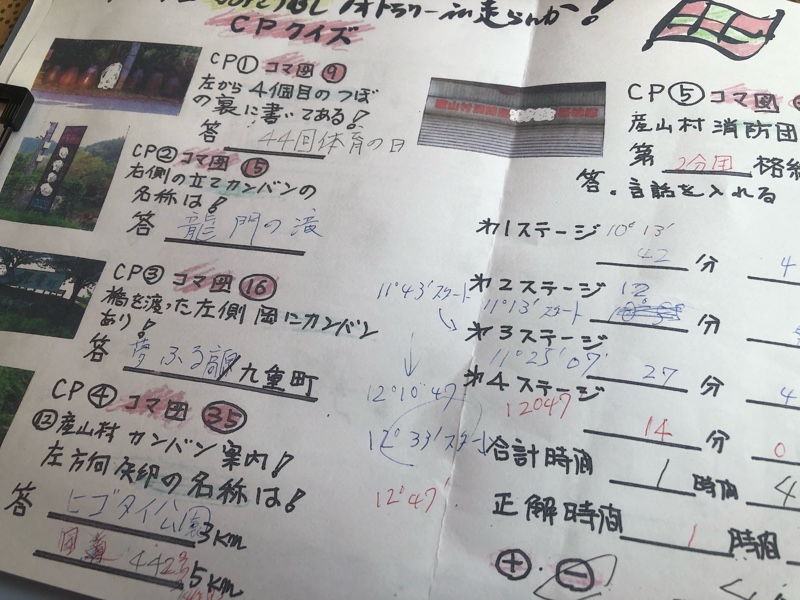 走らんか!
CPクイズ
CP① コマ図⑨
左から4個目のつぼ
の裏に書いてある!
答 44回体育の日
CP② コマ図⑮
右側の立てカンバンの
名称は!
答 龍門の滝
CP③ コマ図⑯
橋を渡った左側 岡にカンバン
あり!
答 夢ふる 九重町
CP④ コマ図㉟
⑫産山村 カンバン案内!
左方向矢印の名称は!
答 ヒゴタイ公園 3km
442 5km
11°43' スタート
12°10' 47
12°33' スタート
12°47'
CP⑤ コマ図
産山村 消防団
第 2分団 格納
答。言話を入れる
オ1ステージ 10°13'
42 分 4
オ2ステージ 12
11°13' スタート 分
オ3ステージ
11°25' 07' 27 分 4
オ4ステージ
12°47
14 分 0
合計時間 1 時間 4
正解時間 1 時間
+ . -